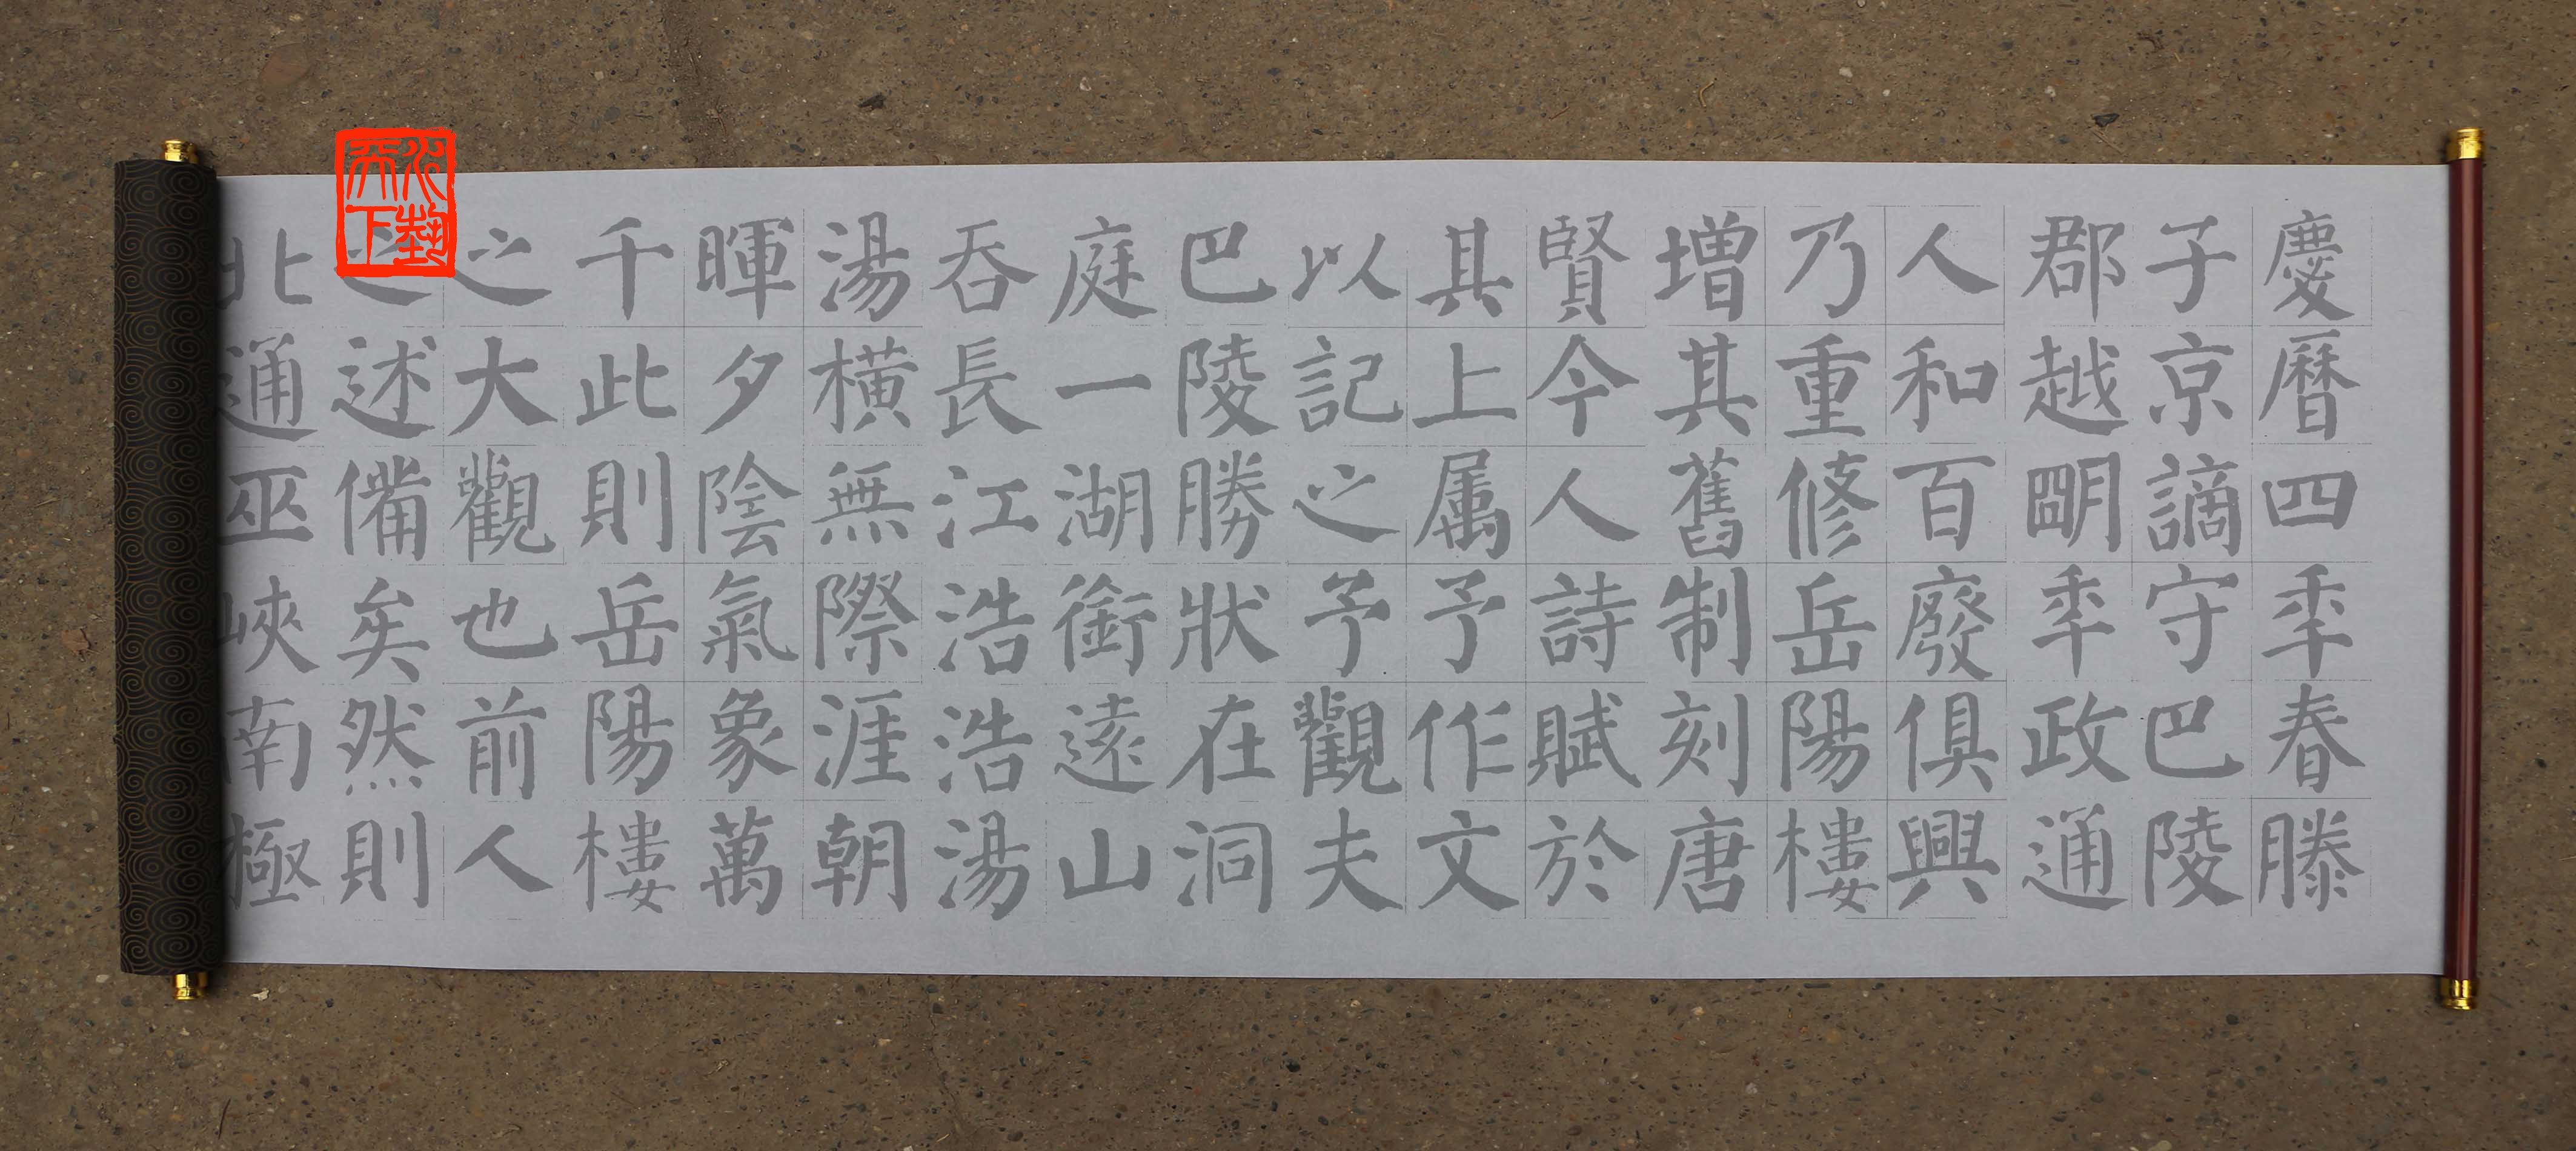 慶曆四秊春滕
子京謫守巴陵
郡越朙秊政通
人和百廢俱興
乃重修岳陽樓
增其舊制刻唐
賢今人詩賦於
其上属予作文
以記之予觀夫
巴陵勝狀在洞
庭一湖銜遠山
吞長江浩浩湯
湯橫無際涯朝
暉夕陰氣象萬
千此則岳陽樓
之大觀也前人
之述備矣然則
北通巫峽南極
天下